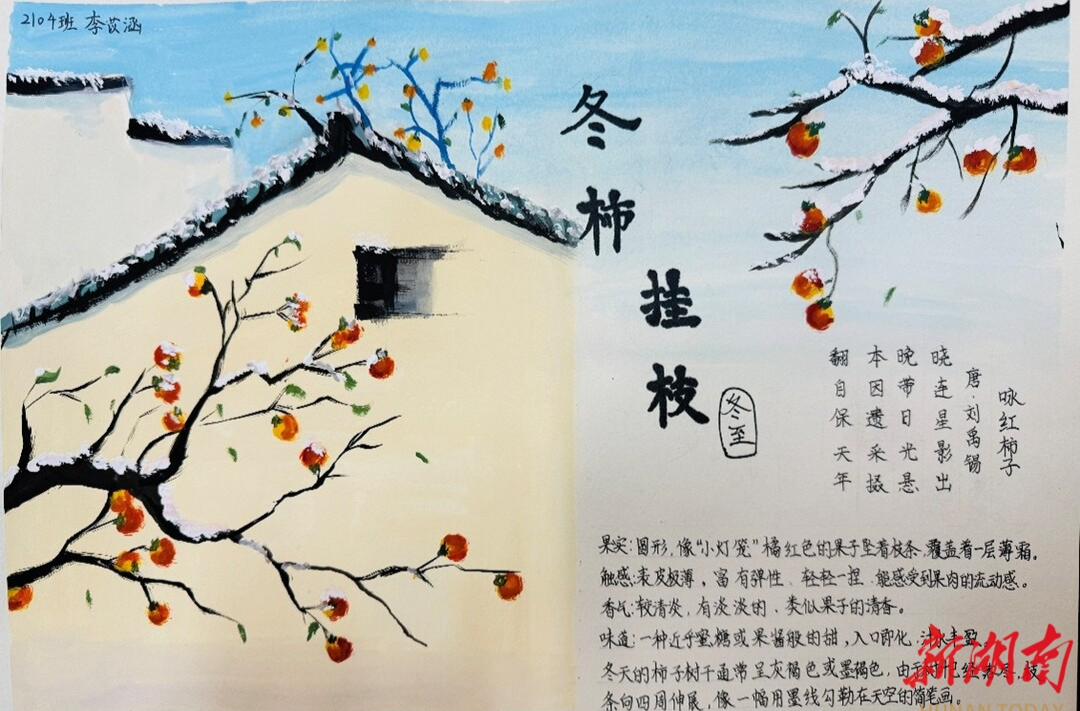 2104班 李苡涵
冬柿挂枝
冬至
咏红柿子
唐·刘禹锡
晓连星影出
晚带日光悬
本因遗采掇
翻自保天年
果实:圆形,像“小灯笼”橘红色的果子坠着枝条,覆盖着一层薄霜。
触感:表皮极薄,富有弹性、轻轻一捏,能感受到果肉的流动感。
香气:较清淡,有淡淡的、类似果子的清香。
味道:一种近乎蜜糖或果酱般的甜,入口即化,汁水丰盈。
冬天的柿子树干通常呈灰褐色或墨褐色,由于叶已经落尽,枝
条向四周伸展,像一幅用墨线勾勒在天空的简笔画。
新湖南
HUNAN TODAY